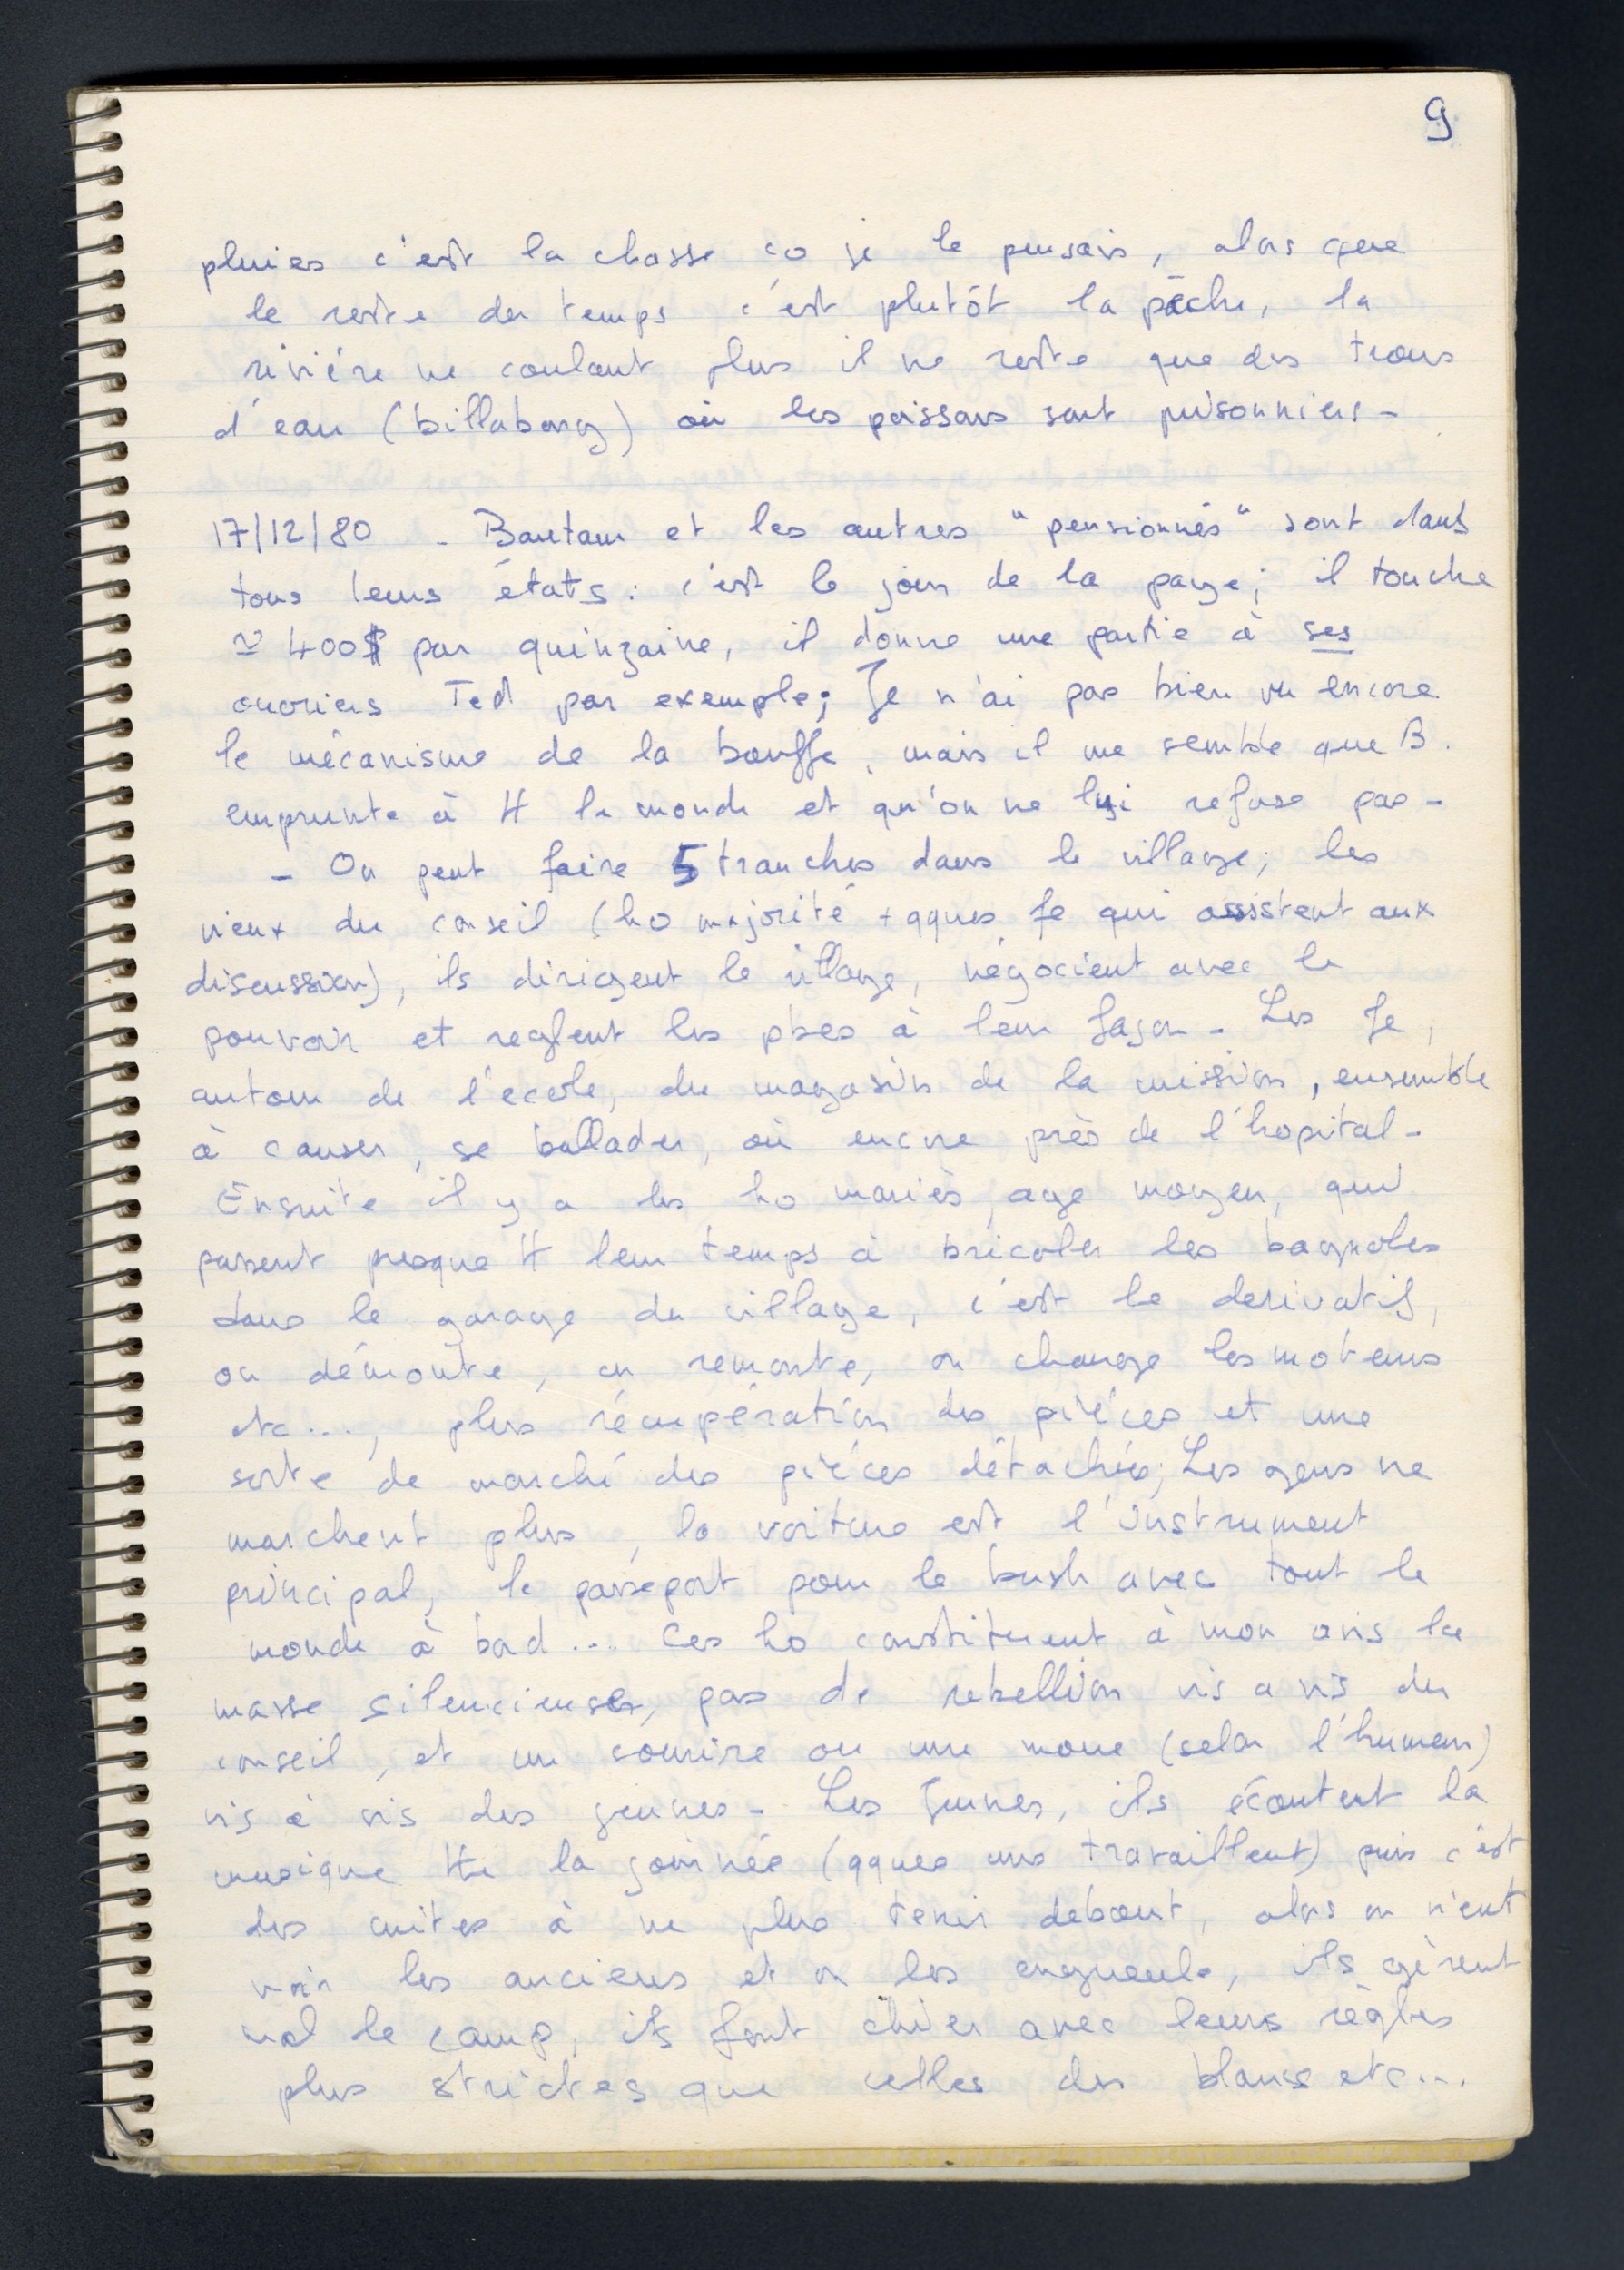 9
pluies c'est la chasse co je le pensais, alors que
le reste du temps c'est plutôt la pêche, la
rivière ne coulant plus il ne reste que des trous
d'eau (billabong) où les poissons sont prisonniers -
17/12/80 - Bantam et les autres "pensionnés" sont dans
tous leurs états : c'est le jour de la paye ; il touche
≃ 400$ par quinzaine, il donne une partie à ses
Ted par exemple ; Je n'ai pas bien vu encore
le mécanisme de la bouffe, mais il me semble que B.
emprunte à tt le monde et qu'on ne lui refuse pas -
- On peut faire 5 tranches dans le village ; les
vieux du conseil (ho majorité + qques fe qui assistent aux
discussion), ils dirigent le village, négocient avec le
pouvoir et reglent les pbes à leur façon - Les fe,
autour de l'école, du magasin de la mission, ensemble
à causer, se ballader, où encore près de l'hopital -
Ensuite il y a les ho mariés, age moyen, qui
passent presque tt leur temps à bricoler les bagnoles
dans le garage du village, c'est le derivatif,
on démonte, on remonte, on change les moteurs
etc..., plus récupération des pièces et une
sorte de marché des pièces détachées ; Les gens ne
marchent plus, la voiture est l'instrument
principal, le passeport pour le bush avec tout le
monde à bord ... Ces ho constituent à mon avis la
masse silencieuse, pas de rebellion vis a vis du
conseil, et un sourire ou une moue (selon l'humeur)
vis à vis des jeunes - Les jeunes, ils écoutent la
musique tte la journée (qques uns travaillent) puis c'est
des cuites à ne plus tenir debout, alors on vient
voir les anciens et on les engueule, ils gèrent
mal le camp, ils font chier avec leurs règles
plus strictes que celles des blancs etc...